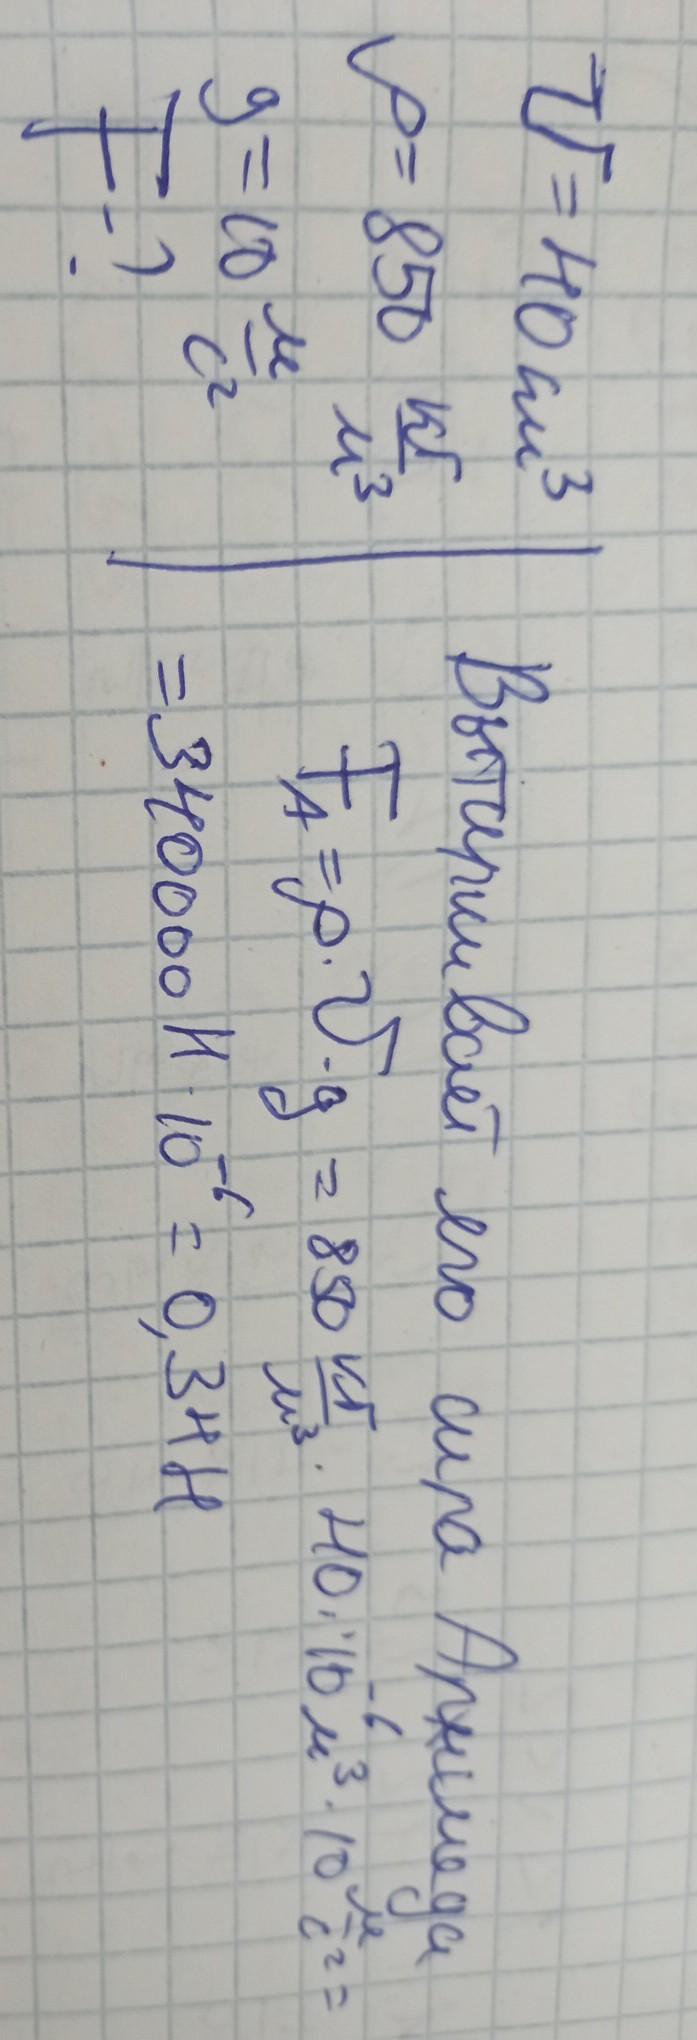 V = 40 см³
ρ = 850 кг/м³
g = 10 м/с²
F - ?
Выталкивает его сила Архимеда
F_A = ρ · V · g = 850 кг/м³ · 40 · 10⁻⁶ м³ · 10 м/с² =
= 340000 Н · 10⁻⁶ = 0,34 Н